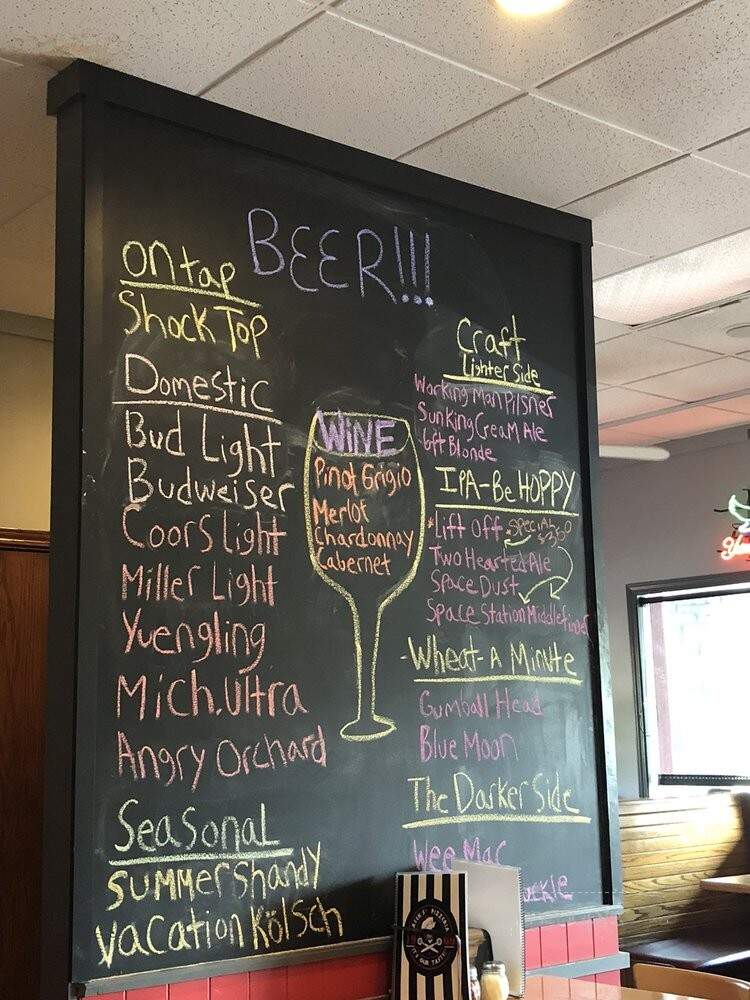 BEER!!!
On tap
Shock Top
Domestic
Bud Light
Budweiser
Coors Light
Miller Light
Yuengling
Mich. Ultra
Angry Orchard
Seasonal
Summer Shandy
Vacation Kölsch
WINE
Pinot Grigio
Merlot
Chardonnay
Cabernet
Craft
Lighter Side
Working Man Pilsner
Sun King Cream Ale
6ft Blonde
IPA-Be HOPPY
*Lift Off - Special
Two Hearted Ale
Space Dust
Space Station Middlefinger
-Wheat-A Minute
Gumball Head
Blue Moon
The Darker Side
Wee Mac